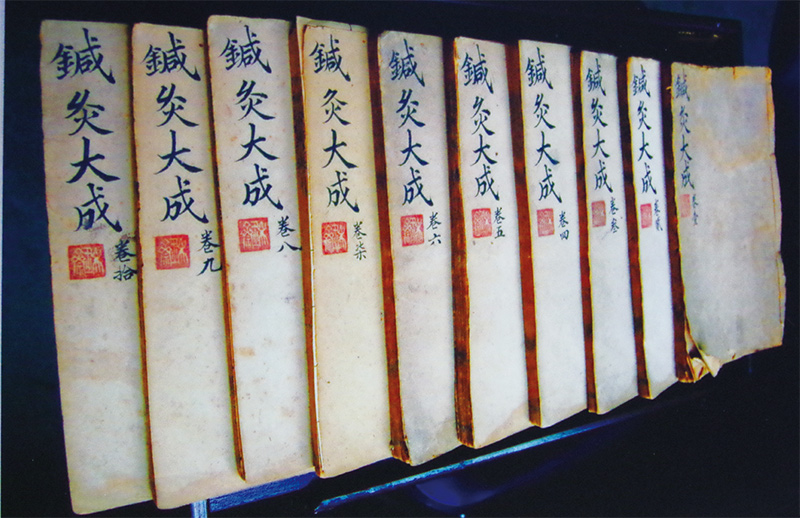 鍼灸大成
卷壹
鍼灸大成
卷貳
鍼灸大成
卷叁
鍼灸大成
卷四
鍼灸大成
卷五
鍼灸大成
卷六
鍼灸大成
卷柒
鍼灸大成
卷八
鍼灸大成
卷九
鍼灸大成
卷拾